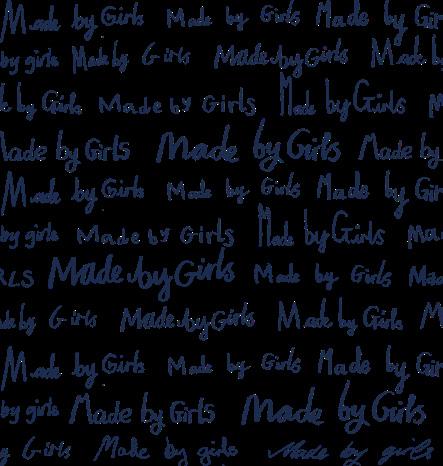 Made by Girls Made by Girls Made by Gi
by girls Made by Girls Made by Girls Made b
de by Girls Made by Girls Made by Girls M
Made by Girls Made by Girls Made by
Made by Girls Made by Girls Made by Gir
by girls Made by Girls Made by Girls Mad
RLS Made by Girls Made by Girls Mad
de by Girls Made by Girls Made by Girls M
Made by Girls Made by Girls Made by Gi
by girls Made by Girls Made by Girls
y Girls Made by girls Made by girls